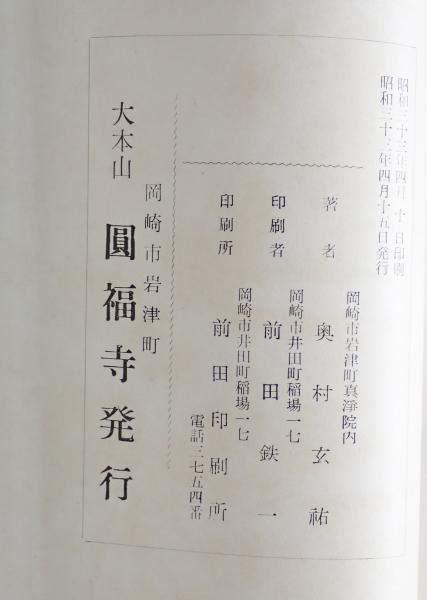 昭和三十三年四月 十 日印刷
昭和三十三年四月十五日発行
岡崎市岩津町真浄院内
著者 奥村玄祐
岡崎市井田町稲場一七
印刷者 前田鉄一
岡崎市井田町稲場一七
印刷所 前田印刷所
電話三七五四番
岡崎市岩津町
大本山 圓福寺発行